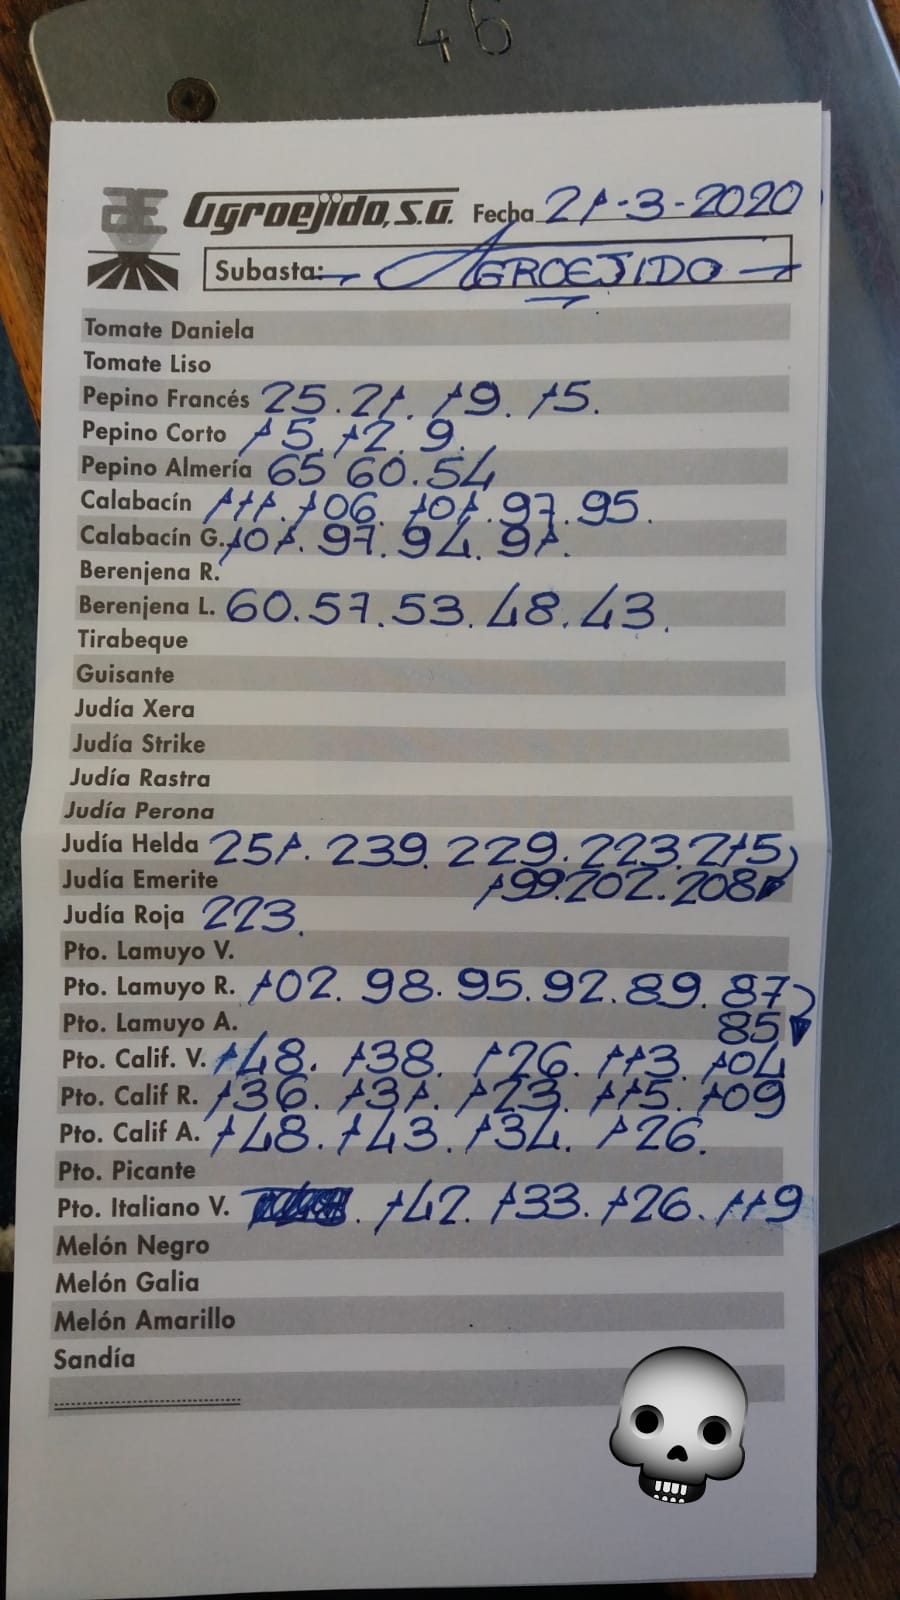 46
Agroejido, S.A. Fecha 21-3-2020
Subasta: AGROEJIDO
Tomate Daniela
Tomate Liso
Pepino Francés 25. 21. 19. 15.
Pepino Corto 15. 12. 9.
Pepino Almería 65 60. 54
Calabacín 111. 106. 101. 97. 95.
Calabacín G. 101. 97. 94. 91.
Berenjena R.
Berenjena L. 60. 57. 53. 48. 43.
Tirabeque
Guisante
Judía Xera
Judía Strike
Judía Rastra
Judía Perona
Judía Helda 251. 239. 229. 223. 215
Judía Emerite 199. 202. 208
Judía Roja 223.
Pto. Lamuyo V.
Pto. Lamuyo R. 102. 98. 95. 92. 89. 87
Pto. Lamuyo A. 85
Pto. Calif. V. 148. 138. 126. 113. 104
Pto. Calif R. 136. 131. 123. 115. 109
Pto. Calif A. 148. 143. 134. 126.
Pto. Picante
Pto. Italiano V. 142. 133. 126. 119
Melón Negro
Melón Galia
Melón Amarillo
Sandía